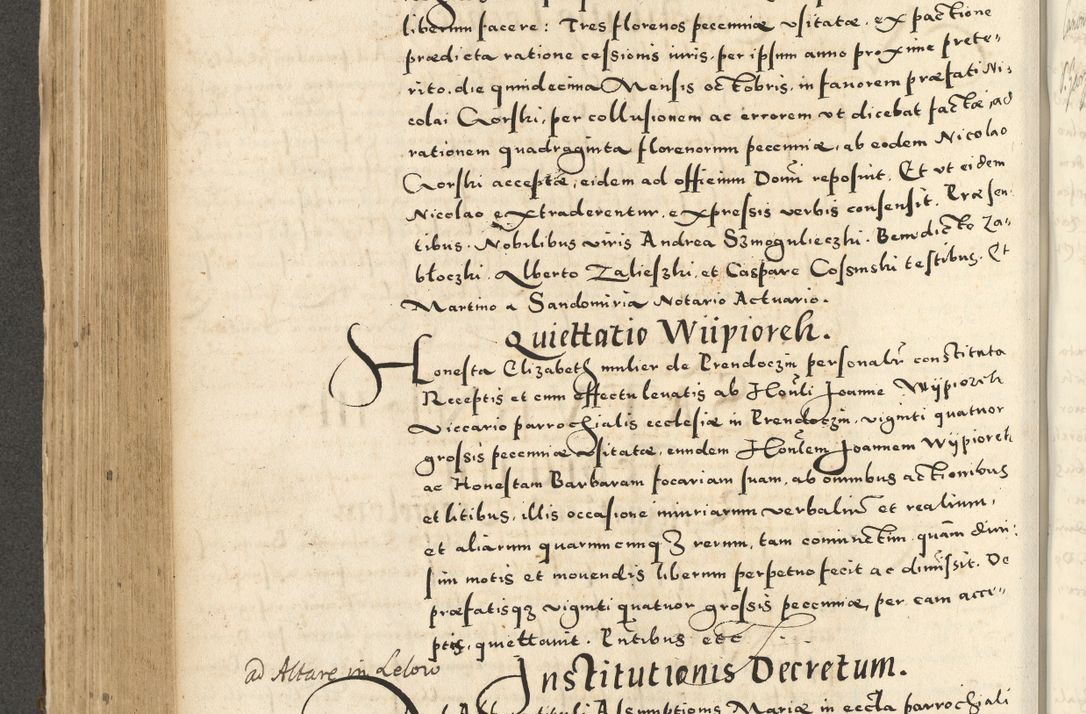 liberum facere: Tres florenos pecuniæ usitatæ, ex pactione
prædicta ratione cessionis iuris, per ipsum anno proxime prete-
rito, die quindecima Mensis octobris, in fauorem præfati Ni-
colai Gorski, per collusionem ac errorem ut dicebat factæ, ad
rationem quadraginta florenorum pecuniæ, ab eodem Nicolao
Gorski acceptæ, eidem ad officium Domi reposuit. Et ut eidem
Nicolao extraderentur, expressis verbis consensit. Præsen-
tibus. Nobilibus viris Andrea Szmogulieczki. Benedicto Za-
błoczki. Alberto Zalieszki, et Caspare Cosinski testibus. Et
Martino a Sandomiria Notario Actuario.
Quiettatio Wiipiorek.
Honesta Elizabeth mulier de Prendoczin personalr constituta
Receptis et cum effectu leuatis ab Honli Joanne Wÿpiorek
Viccario parrochialis ecclesiæ in Prendoczin, viginti quatuor
grossis pecuniæ usitatæ, eundem Honlem Joannem Wÿpiorek
ac Honestam Barbaram focariam suam, ab omnibus actionibus
et litibus, illis occasione iniuriarum verbaliu et realium,
et aliarum quarumcunqʒ rerum, tam coniunctim, quam diui-
sim motis et mouendis liberum perpetuo fecit ac dimissit. De
præfatisqʒ viginti quatuor grossis pecuniæ, per eam acce-
ptis, quiettauit. Pntibus etc
ad Altare in Lelow
Institutionis Decretum.
tituli Assumptionis Mariæ in eccla parrochiali